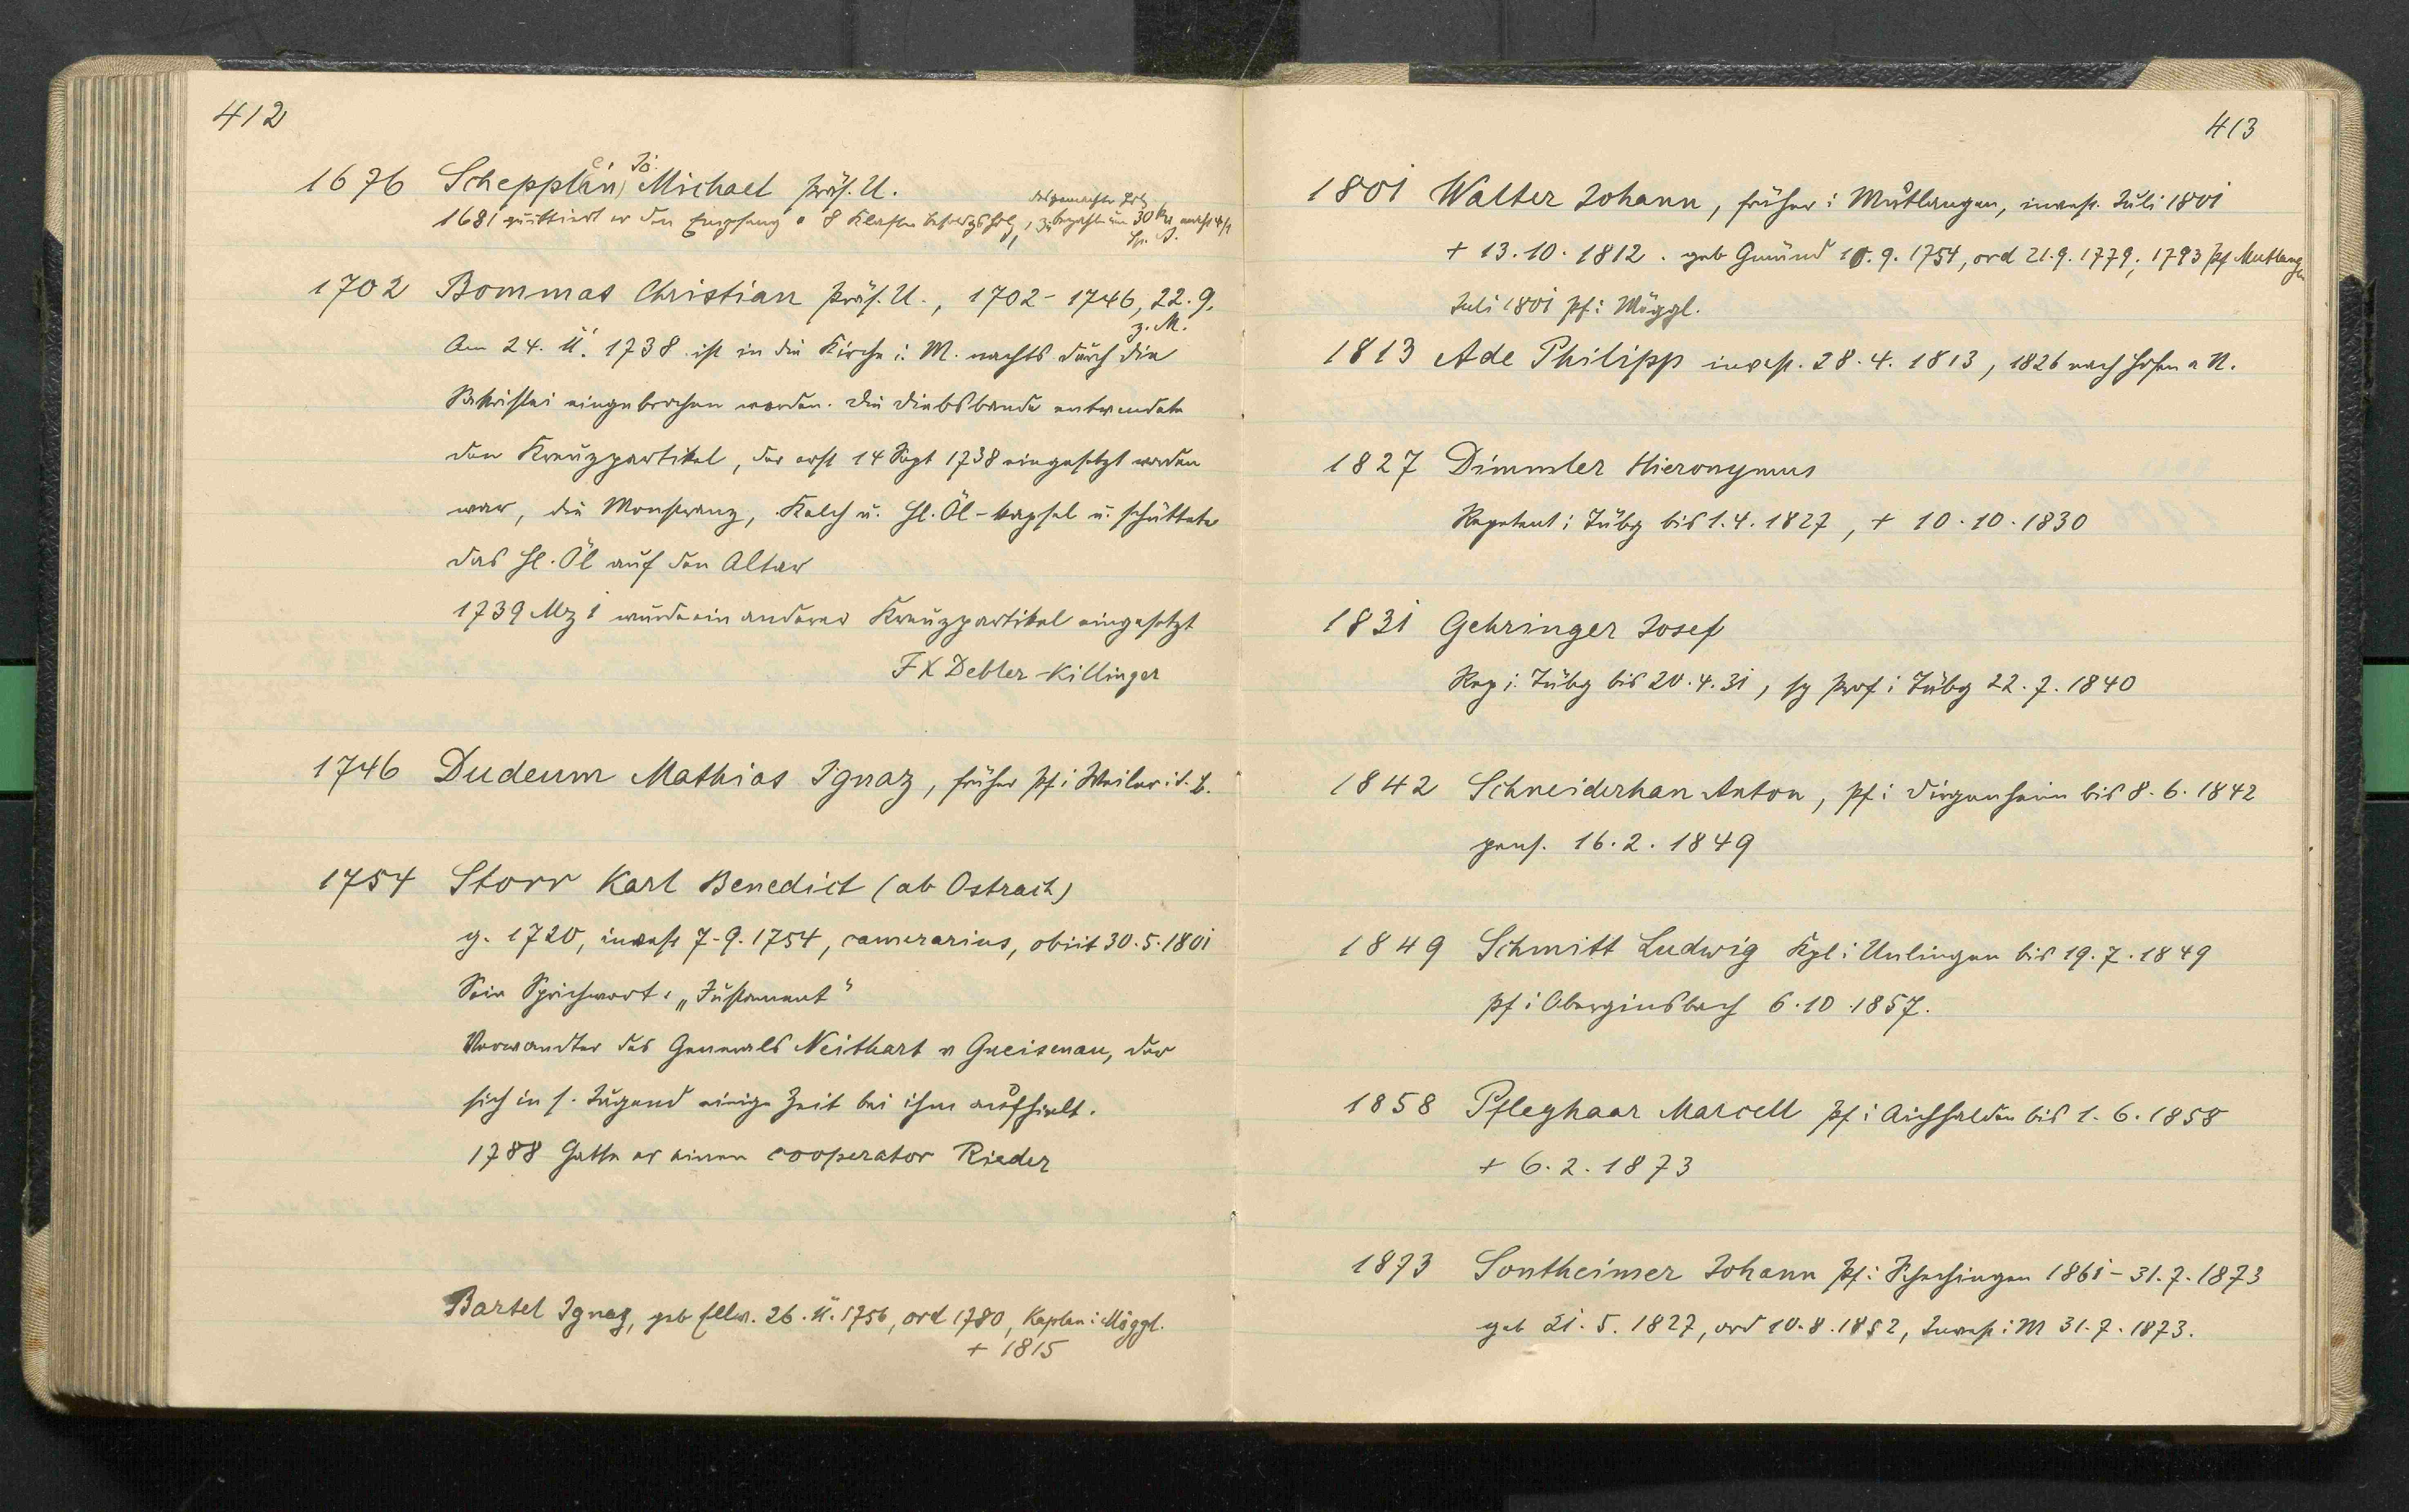 412
1676 Schepplein, Jo. Michael präs. U.
das gemachte Holz
1681 quittiert er den Empfang v 8 Klafter Besold.holz, zu bezahlen um 30 Kr macht 4 fl
Sp. A.
1702 Bommas Christian präs. U., 1702 - 1746, 22. 9.
z. M.
Am 24. 11. 1738 ist in die Kirche i. M. nachts durch die
Sakristei eingebrochen worden. Die Diebsbande entwendete
den Kreuzpartikel, der erst 14 Sept 1738 eingesetzt worden
war, die Monstranz, Kelch u. hl. Öl-kapsel u. schüttete
das hl. Öl auf den Altar
1739 Mz 1 wurde ein anderer Kreuzpartikel eingesetzt
F X Debler - Killinger
1746 Dudeum Mathias Ignaz, früher Pf i Weiler i. d. B.
1754 Storr Karl Benedict (ab Ostrach)
g. 1720, invest 7. 9. 1754, camerarius, obiit 30. 5. 1801
Sein Sprichwort: „Justament"
Verwandter des Generals Neithart v Gneisenau, der
sich in s. Jugend einige Zeit bei ihm aufhielt.
1788 hatte er einen cooperator Rieder
Bartel Ignaz, geb Ellw. 26. 11. 1756, ord 1780, Kaplan i Möggl.
+ 1815
413
1801 Walter Johann, früher i Mutlangen, invest. Juli 1801
+ 13. 10. 1812. geb Gmünd 10. 9. 1754, ord 21. 9. 1779, 1793 Pf Mutlangen
Juli 1801 Pf i Möggl.
1813 Ade Philipp invest. 28. 4. 1813, 1826 nach Hofen a N.
1827 Dimmler Hieronymus
Repetent i Tübg bis 1. 4. 1827, + 10. 10. 1830
1831 Gehringer Josef
Rep i. Tübg bis 20. 4. 31, sp Prof i Tübg 22. 7. 1840
1842 Schneiderhan Anton, Pf i Dirgenheim bis 8. 6. 1842
pens. 16. 2. 1849
1849 Schmitt Ludwig Kpl i Unlingen bis 19. 7. 1849
Pf i Oberginsbach 6. 10. 1857.
1858 Pfleghaar Marcell Pf i Aichhalden bis 1. 6. 1858
+ 6. 2. 1873
1873 Sontheimer Johann Pf i Schechingen 1861 - 31. 7. 1873
geb 21. 5. 1827, ord 10. 8. 1852, Invest i M 31. 7. 1873.